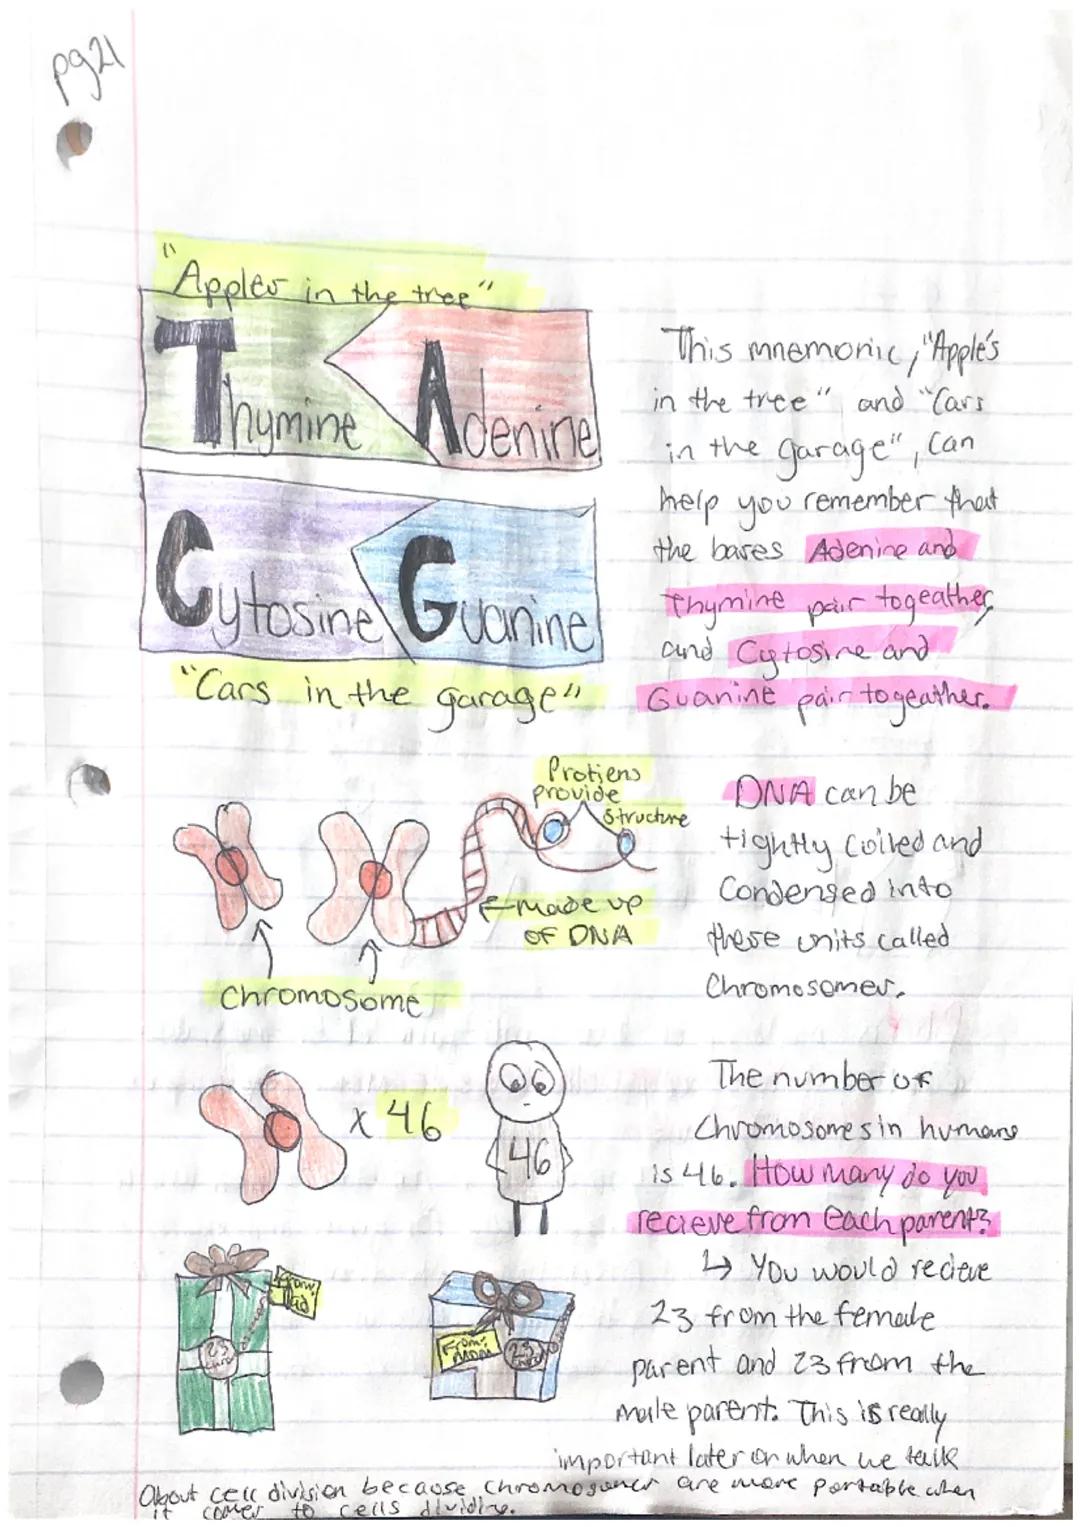 pg21
"Apples in the tree"
Thymine Adenine
Cytosine Guanine
"Cars in the garage"
This mnemonic, "Apple's
in the tree" and "Cars
in the garage", can
help you remember that
the bases Adenine and
Thymine pair togeather
and Cytosine and
Guanine pair togeather.
Protiens
provide
structure
made up
OF DNA
Chromosome
DNA can be
tightly coiled and
Condensed into
these units called
Chromosomes.
x 46
46
The number of
Chromosomes in humans
is 46. How many do you
recieve from each parent?
↳ You would recieve
23 from the female
parent and 23 from the
male parent. This is really
important later on when we talk
About cell division because chromosomes are more portable when
it comes to cells dividing.
From:
Dad
23
From:
Mom
23